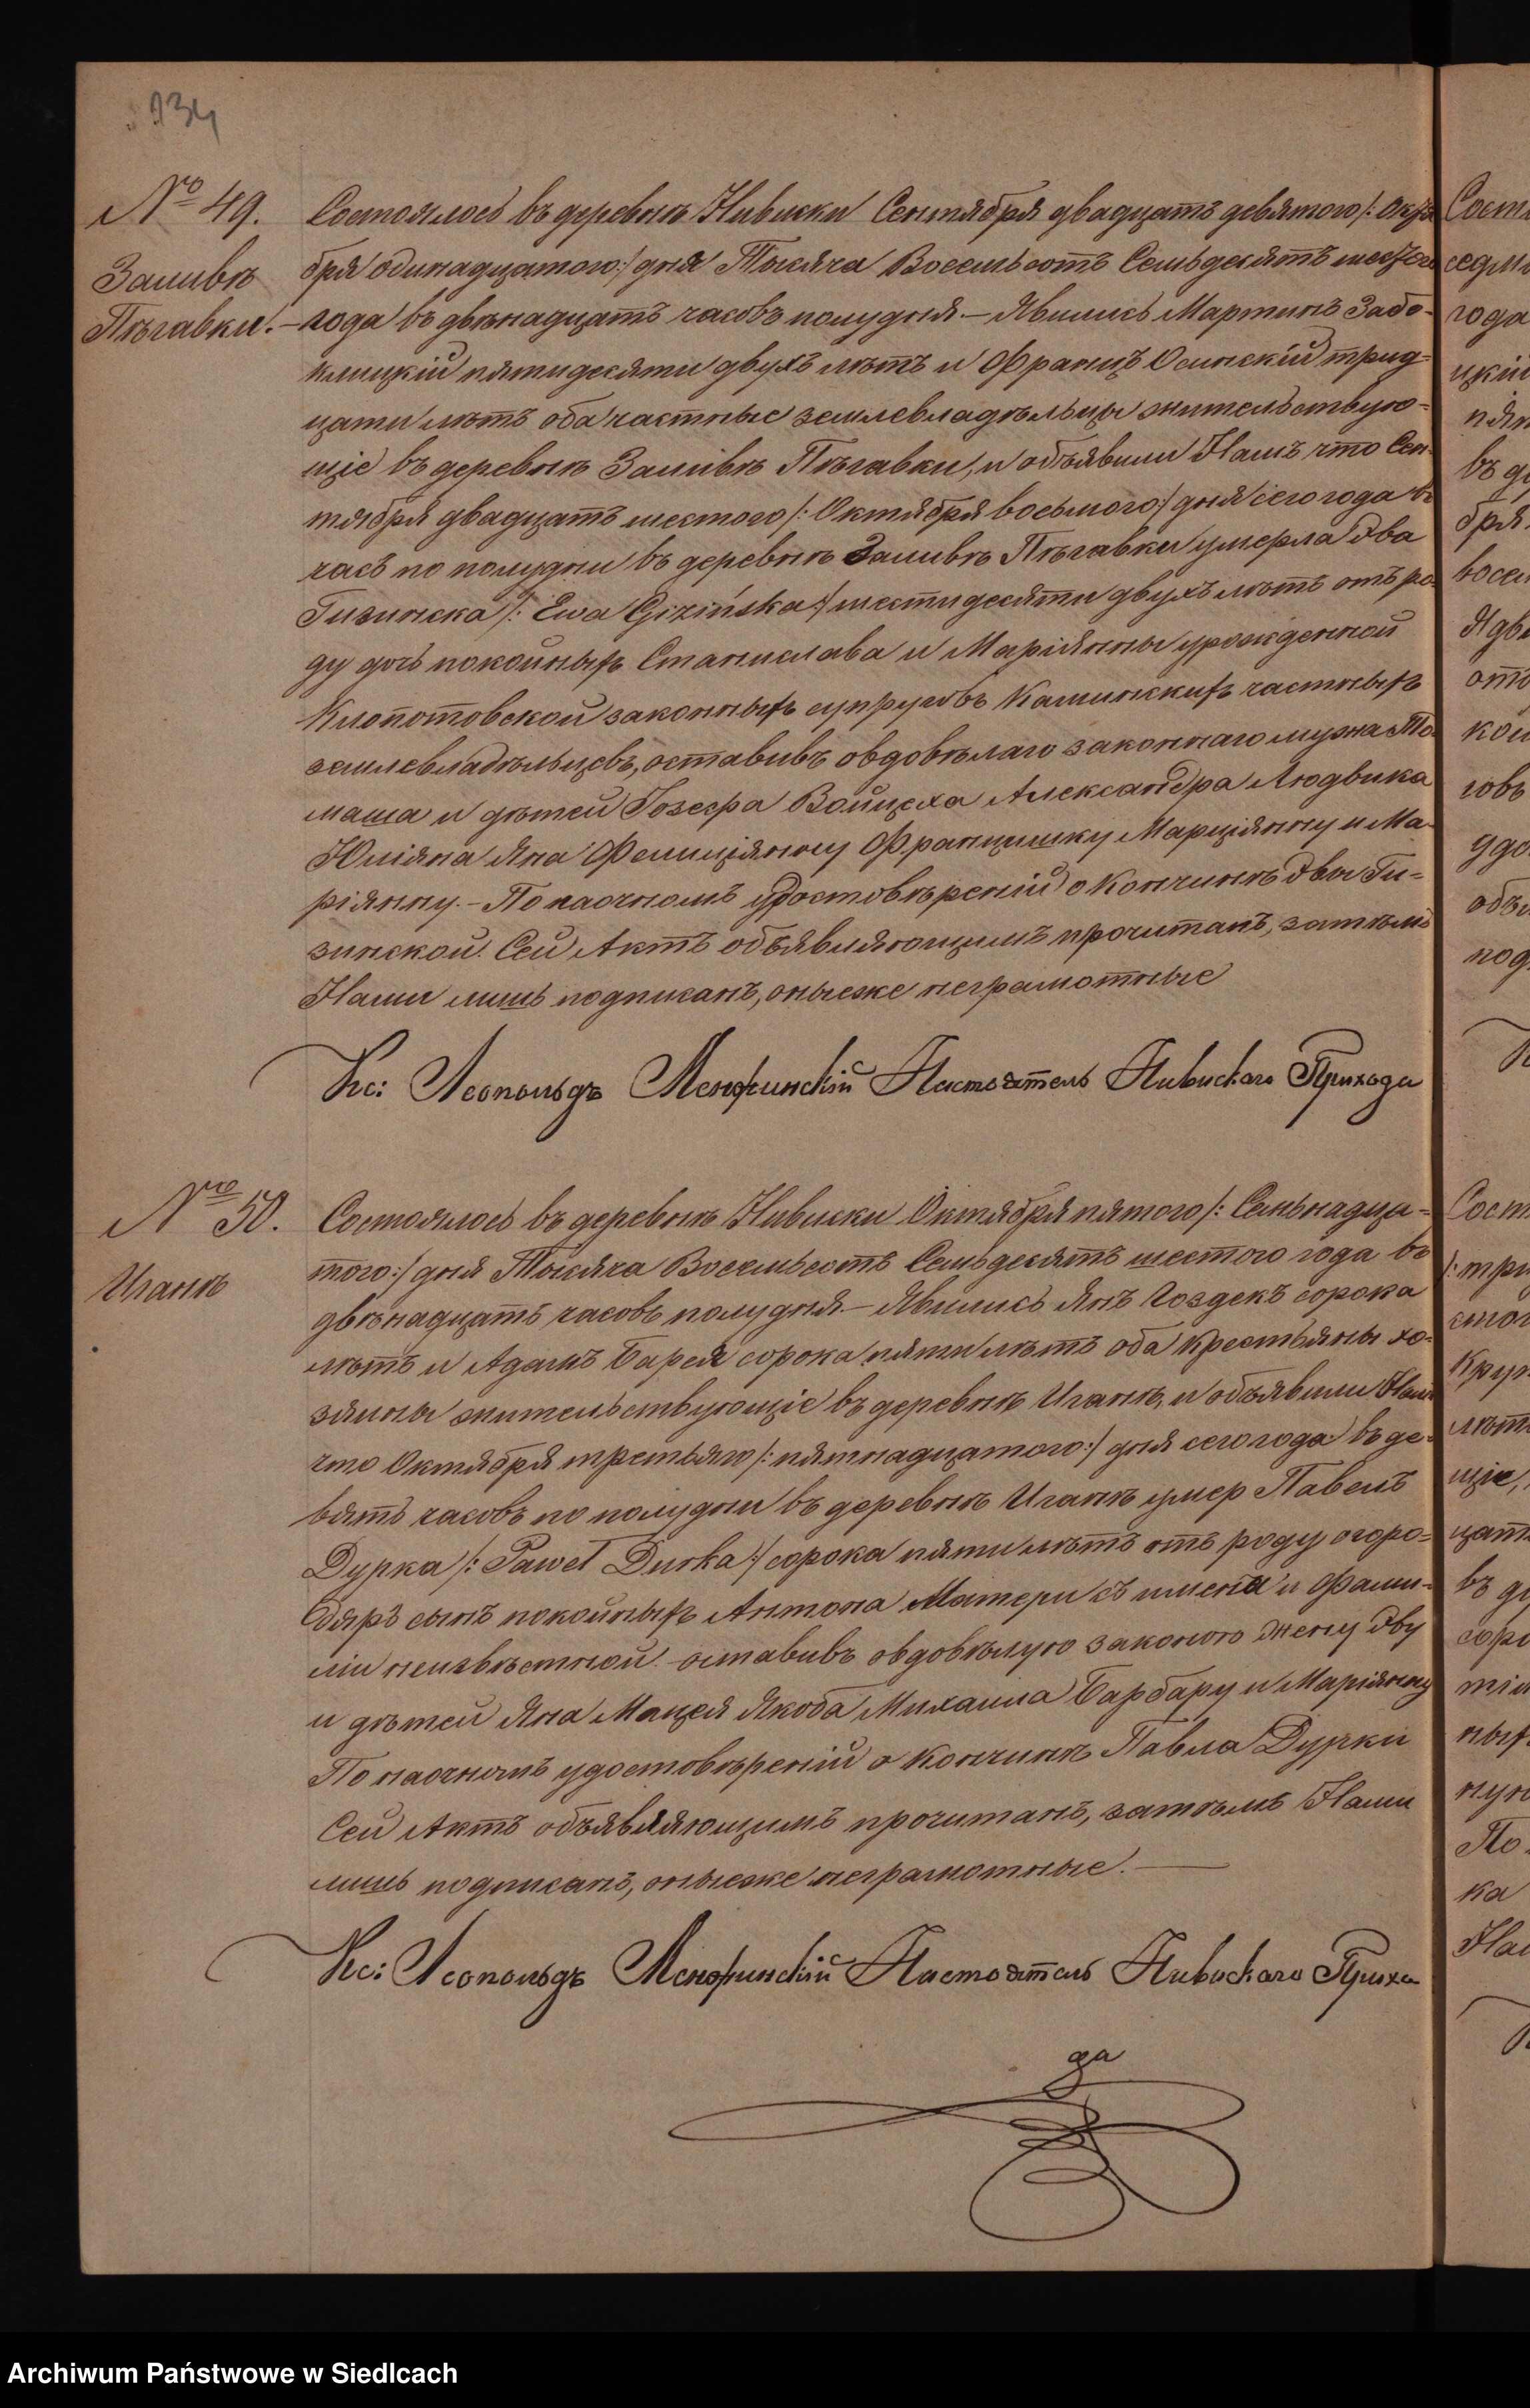 134
№ 49.
Заливѣ
Пѣгавки.
Состоялось въ деревнѣ Нивиски Сентября двадцать девятаго /: Октя
бря одинадцатого :/ дня Тысяча Восемьсотъ Семьдесятъ шестого
года въ двѣнадцать часовъ полудня. — Явились Мартинъ Забо-
клицкій пятидесяти двухъ лѣтъ и Францъ Осинскій трид-
цати лѣтъ оба частные землевладѣльцы жительствую-
щіе въ деревнѣ Заливѣ Пѣгавки, и объявили Намъ что Сен-
тября двадцать шестого /: Октября восьмого :/ дня сего года въ
часъ по полудни въ деревнѣ Заливѣ Пѣгавки умерла Эва
Гизинска /: Ewa Gizińska :/ шестидесяти двухъ лѣтъ отъ ро-
ду дочь покойныхъ Станислава и Маріянны урожденной
Клопотовской законныхъ супруговъ Калинскихъ частныхъ
землевладѣльцевъ, оставивъ овдовѣлаго законнаго мужа То-
маша и дѣтей Іозефа Войцеха Александра Людвика
Юліяна Яна Фелиціянну Францишку Марціянну и Ма-
ріянну. — По наочномъ удостовѣреній о Кончинѣ Эвы Ги-
зинской. Сей Актъ объявляющимъ прочитанъ, затѣмъ
Нами лишь подписанъ, оныеже неграмотные
Кс: Леопольдъ Настоятель Нивискаго Прихода
№ 50.
Иганѣ
Состоялось въ деревнѣ Нивиски Октября пятого /: Семьнадца-
того :/ дня Тысяча Восемьсотъ Семьдесятъ шестого года въ
двѣнадцать часовъ полудня. — Явились Янъ Гоздекъ сорока
лѣтъ и Адамъ Барея сорока пяти лѣтъ оба Крестьяны хо-
зяины жительствующіе въ деревнѣ Иганѣ, и объявили Намъ
что Октября третьяго /: пятнадцатого :/ дня сего года въ де-
вять часовъ по полудни въ деревнѣ Иганѣ умер Павелъ
Дурка /: Paweł Durka :/ сорока пяти лѣтъ отъ роду огоро-
дяръ сынъ покойныхъ Антона Матери съ имена и Фами-
ліи неизвѣстной оставивъ овдовѣлую законою жену Эву
и дѣтей Яна Мацея Якоба Михаила Барбару и Маріянну
По наочномъ удостовѣреній о Кончинѣ Павла Дурки
Сей Актъ объявляющимъ прочитанъ, затѣмъ Нами
лишь подписанъ, оныеже неграмотные.
Кс: Леопольдъ Настоятель Нивискаго Прихо
да
Archiwum Państwowe w Siedlcach